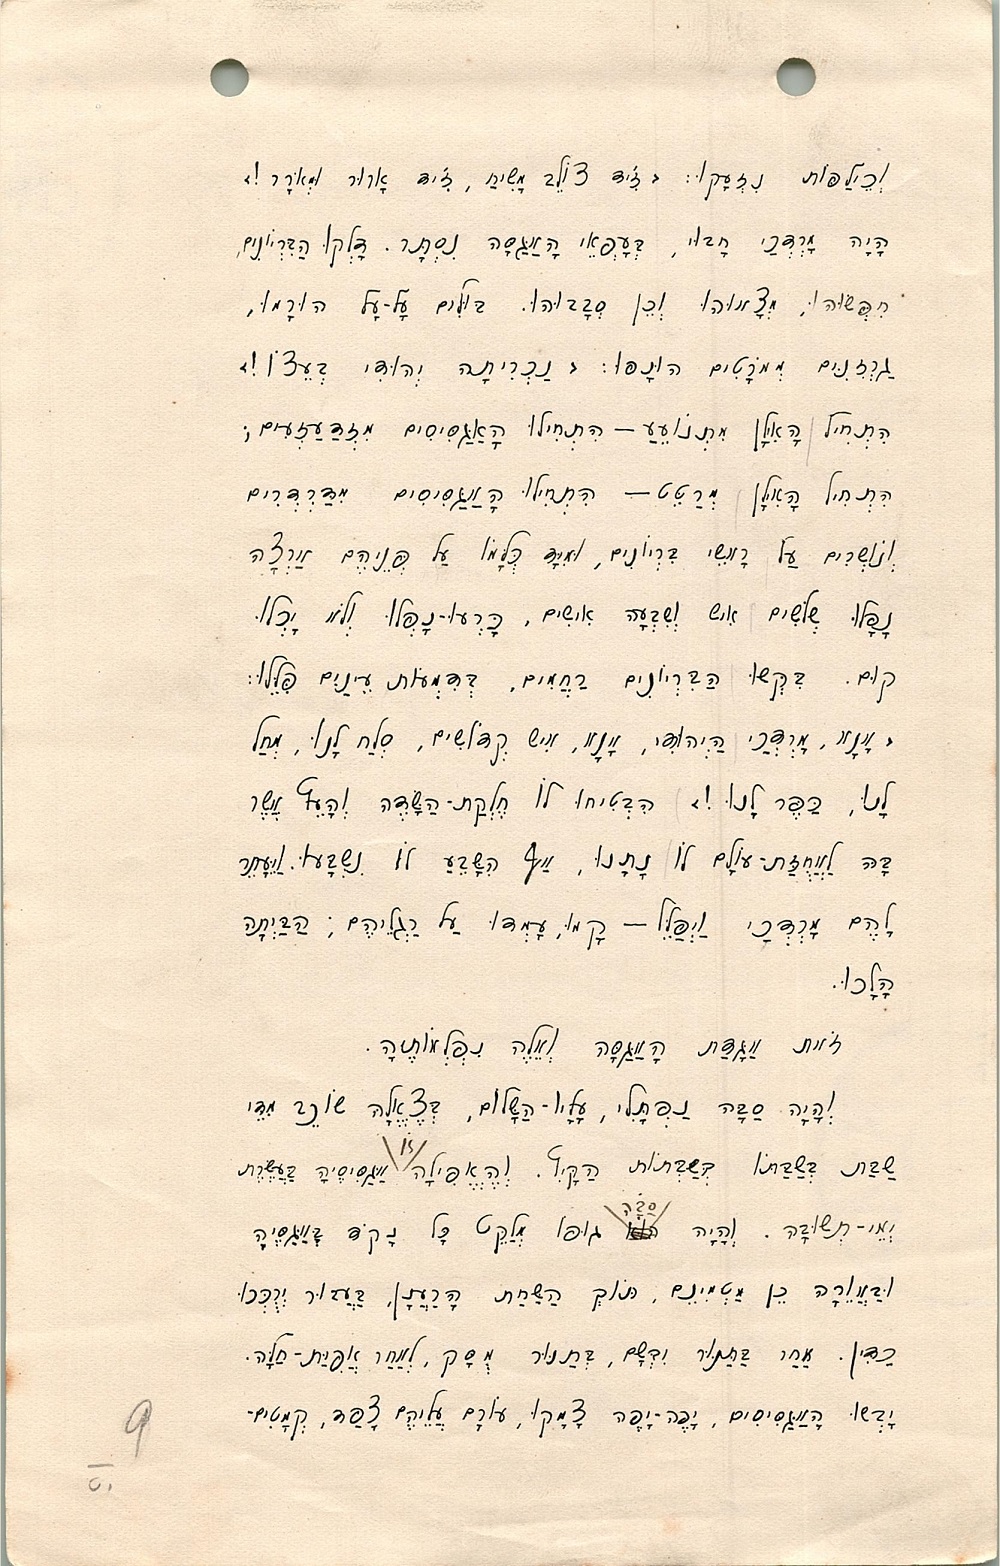 וְכֵילַפּוֹת נִזְעָקוּ: ‹ זִ׳יד צוֹלֵב מָשִׁיחַ, זִ׳יד אָרוּר וּמְאֹרָר !›
הָיָה מָרְדְּכַי חָבוּי, בְּעָפְאֵי הָאַגַּסָּה נִסְתָּר. דָּלְקוּ הַבִּרְיוֹנִים,
חִפְּשׂוּהוּ, מְצָאוּהוּ וְכֵן סְבָבוּהוּ. בּוּלִים עָל-עָל הוּרָמוּ,
גַּרְזִנִּים מְמֹרָטִים הוּנָפוּ: ‹ נַכְרִיתָה יְהוּדִי בְּעֵצוֹ !›
הִתְחִיל הָאִילָן מִתְנוֹעֵעַ — הִתְחִילוּ הָאַגַּסִּיסִים מִזְדַּעְזְעִים ;
הִתְחִיל הָאִילָן מְרַטֵּט — הִתְחִילוּ הָאַגַּסִּיסִים מִדַּרְדְּרִים
וְנוֹשְׁרִים עַל רָאשֵׁי בִּרְיוֹנִים, וּמִיָּד כֻּלָּמוֹ עַל פְּנֵיהֶם אַרְצָה
נָפָלוּ שְׁלֹשִׁים אִישׁ וְשִׁבְעָה אִישִׁים, כָּרְעוּ-נָפְלוּ וְלֹא יָכְלוּ
קוּם. בִּקְּשׁוּ הַבִּרְיוֹנִים רַחֲמִים, בְּדִמְעוֹת עֵינַיִם פִּלֵּלוּ:
‹ אָנָּא, מָרְדְּכַי הַיְהוּדִי, אָנָּא, אִישׁ קְדוֹשִׁים, סְלַח לָנוּ, מְחַל
לָנוּ, כַּפֶּר לָנוּ !› הִבְטִיחוּ לוֹ חֶלְקַת-הַשָּׂדֶה וְהָעֵץ אֲשֶׁר
בָּהּ לַאֲחֻזַּת-עוֹלָם לוֹ נָתָנוּ, אַף הִשָּׁבֵעַ לוֹ נִשְׁבָּעוּ. וַיֵּעָתֵר
לָהֶם מָרְדְּכַי וַיְפַלֵּל — קָמוּ, עָמְדוּ עַל רַגְלֵיהֶם ; הַבַּיְתָה
הָלָכוּ.
זֹאת אַגָּדַת הָאַגַּסָּה וְאֵלֶּה נִפְלְאוֹתֶיהָ.
וְהָיָה סַבָּה נַפְתָּלִי, עָלָיו-הַשָּׁלוֹם, בְּצֶאֱלָהּ שׁוֹכֵב מִדֵּי
שַׁבָּת בְּשַׁבַּתּוֹ בְּשַׁבְּתוֹת הַקָּיִץ. וְהֶאֱפִילָה זוֹ אַגַּסִּיסֶיהָ בַּעֲשֶׂרֶת
יְמֵי-תְּשׁוּבָה. וְהָיָה סַבָּה גּוּפוֹ מְלַקֵּט כָּל נָקֹד בָּאַגַּסֶּיהָ
וּבַאֲוֵרָה כֵּן מַטְמִינָם, תּוֹךְ הַשַּׁחַת הָרַעֲנָן, בַּעֲבוּר יְרַכְּכוּ
כַּדִּין. אַחַר בַּתַּנּוּר יִבְּשָׁם, בְּתַנּוּר מֻסָּק, לְאַחַר אֲפִיַּת-חַלָּה.
יָבְשׁוּ הָאַגַּסִּיסִים, יָפֶה-יָפֶה צָמָקוּ, עוֹרָם עֲלֵיהֶם צָפַד, קְמָטִים-
9